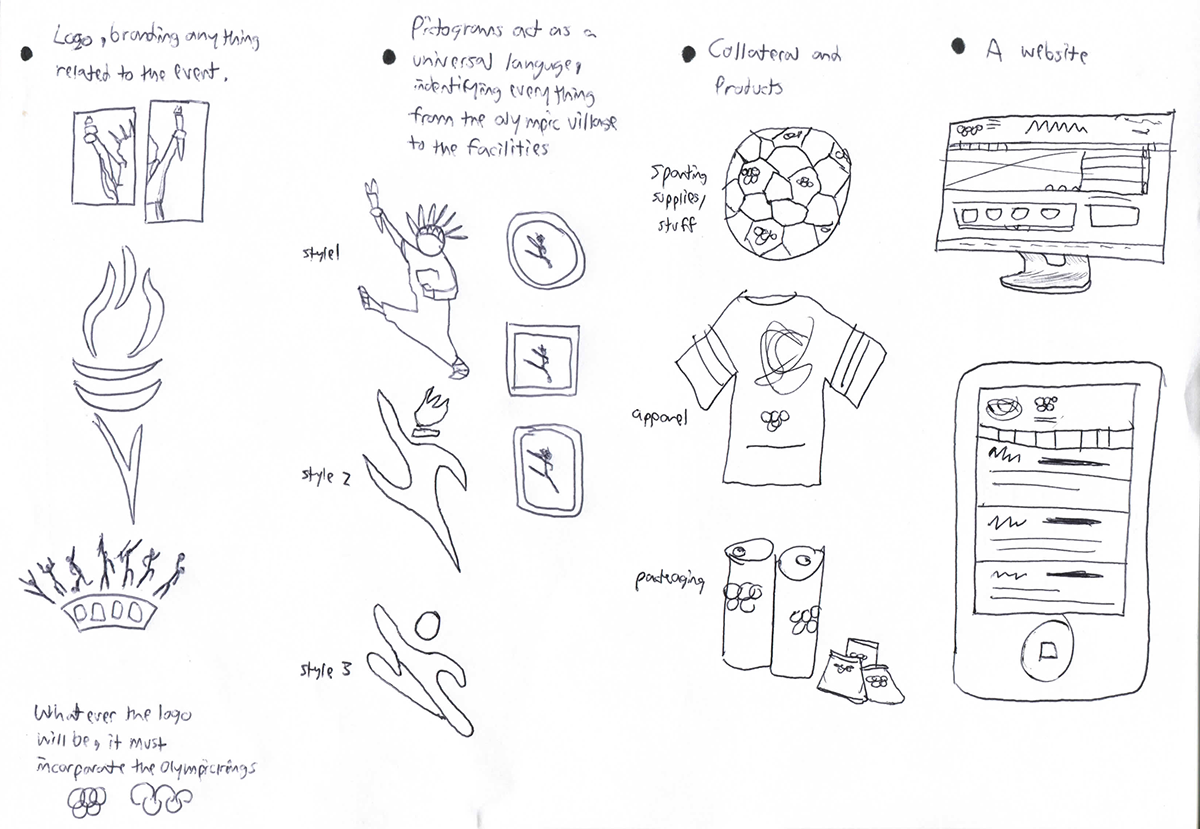 Logo, branding anything
related to the event.
Whatever the logo
will be, it must
incorporate the Olympic rings
Pictograms act as a
universal language,
indentifying everything
from the olympic village
to the facilities
style 1
style 2
style 3
Collateral and
Products
Sporting
supplies/
stuff
apparel
packaging
A website